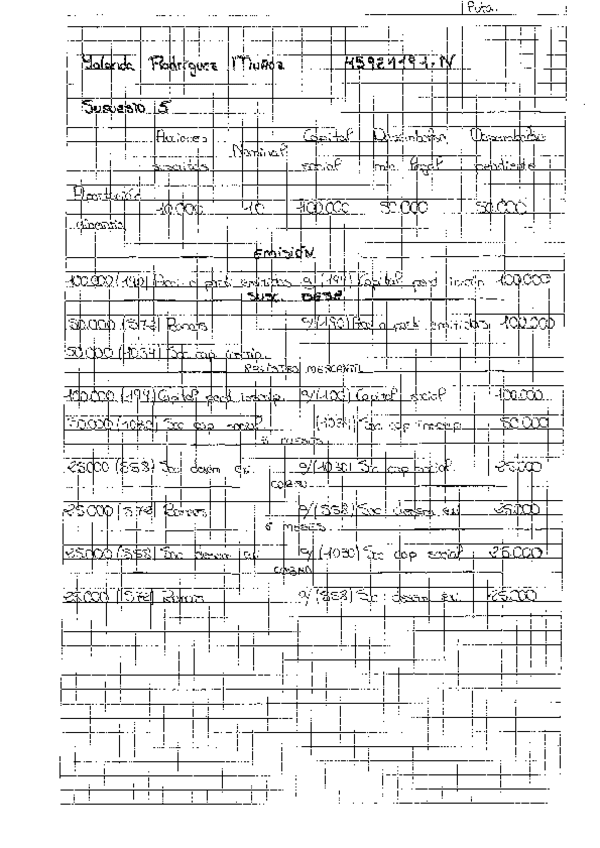 Futa.
Yolanda Rodríguez Muñoz 45921191-N
Supuesto 5
Acciones Nominal Capital Desembolso Desembolso
suscritas social mín. legal pendiente
10.000 10 100.000 50.000 50.000
EMISIÓN
100.000 (190) emitidas a/ (194) Capital pend inscrip 100.000
SUSC. DESE
50.000 (572) Bancos a/ (190) emitidas 100.000
50.000 (1034) Soc cap inscrip.
REGISTRO MERCANTIL
100.000 (194) Capital pend inscrip. a/ (100) Capital social 100.000
50.000 (1030) Soc cap social (1034) Soc cap inscrip 50.000
6 MESES
25.000 (558) Soc desem ex. a/ (1030) Soc cap social 25.000
COBRO
25.000 (572) Bancos a/ (558) Soc desem ex 25.000
6 MESES
25.000 (558) Soc desem ex a/ (1030) Soc cap social 25.000
COBRO
25.000 (572) Bancos a/ (558) Soc desem ex. 25.000